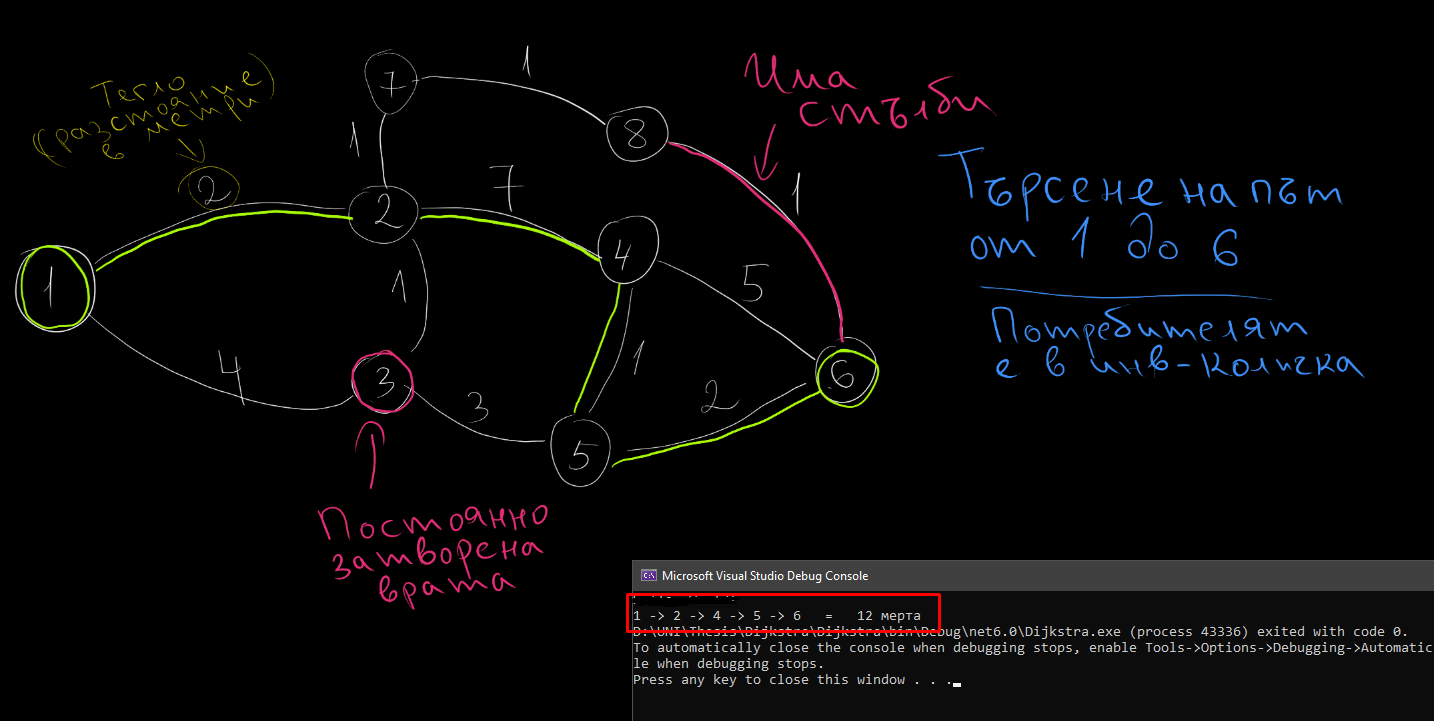 Тегло
(разстояние
в метри)
2
7
1
1
8
Има
стълби
1
2
7
1
4
5
1
1
4
3
3
1
5
2
6
Търсене на път
от 1 до 6
Потребителят
е в инв-количка
Постоянно
затворена
врата
Microsoft Visual Studio Debug Console
1 -> 2 -> 4 -> 5 -> 6   =   12 мерта
D:\UNI\Thesis\Dijkstra\Dijkstra\bin\Debug\net6.0\Dijkstra.exe (process 43336) exited with code 0.
To automatically close the console when debugging stops, enable Tools->Options->Debugging->Automatic
le when debugging stops.
Press any key to close this window . . .